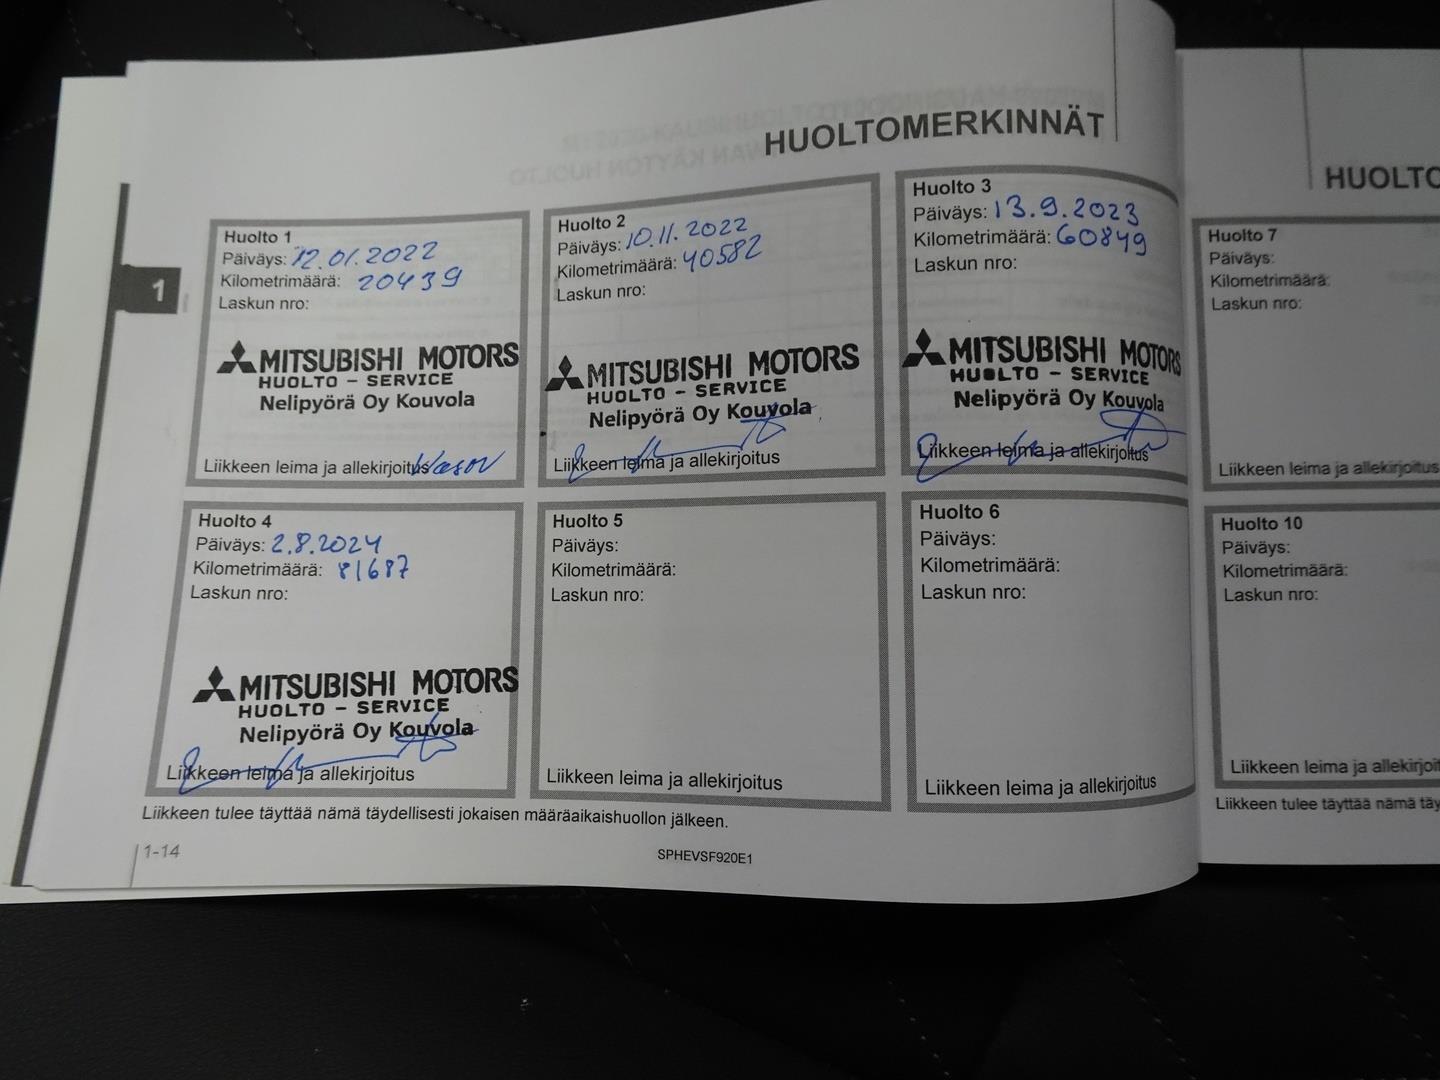 HUOLTOMERKINNÄT
Huolto 1
Päiväys: 12.01.2022
Kilometrimäärä: 20439
Laskun nro:
MITSUBISHI MOTORS
HUOLTO - SERVICE
Nelipyörä Oy Kouvola
Liikkeen leima ja allekirjoitus
Huolto 2
Päiväys: 10.11.2022
Kilometrimäärä: 40582
Laskun nro:
MITSUBISHI MOTORS
HUOLTO - SERVICE
Nelipyörä Oy Kouvola
Liikkeen leima ja allekirjoitus
Huolto 3
Päiväys: 13.9.2023
Kilometrimäärä: 60849
Laskun nro:
MITSUBISHI MOTORS
HUOLTO - SERVICE
Nelipyörä Oy Kouvola
Liikkeen leima ja allekirjoitus
1
Huolto 4
Päiväys: 2.8.2024
Kilometrimäärä: 81687
Laskun nro:
MITSUBISHI MOTORS
HUOLTO - SERVICE
Nelipyörä Oy Kouvola
Liikkeen leima ja allekirjoitus
Huolto 5
Päiväys:
Kilometrimäärä:
Laskun nro:
Liikkeen leima ja allekirjoitus
Huolto 6
Päiväys:
Kilometrimäärä:
Laskun nro:
Liikkeen leima ja allekirjoitus
Liikkeen tulee täyttää nämä täydellisesti jokaisen määräaikaishuollon jälkeen.
1-14
SPHEVSF920E1
HUOLTO
Huolto 7
Päiväys:
Kilometrimäärä:
Laskun nro:
Liikkeen leima ja allekirjoitus
Huolto 10
Päiväys:
Kilometrimäärä:
Laskun nro:
Liikkeen leima ja allekirjoit
Liikkeen tulee täyttää nämä täy